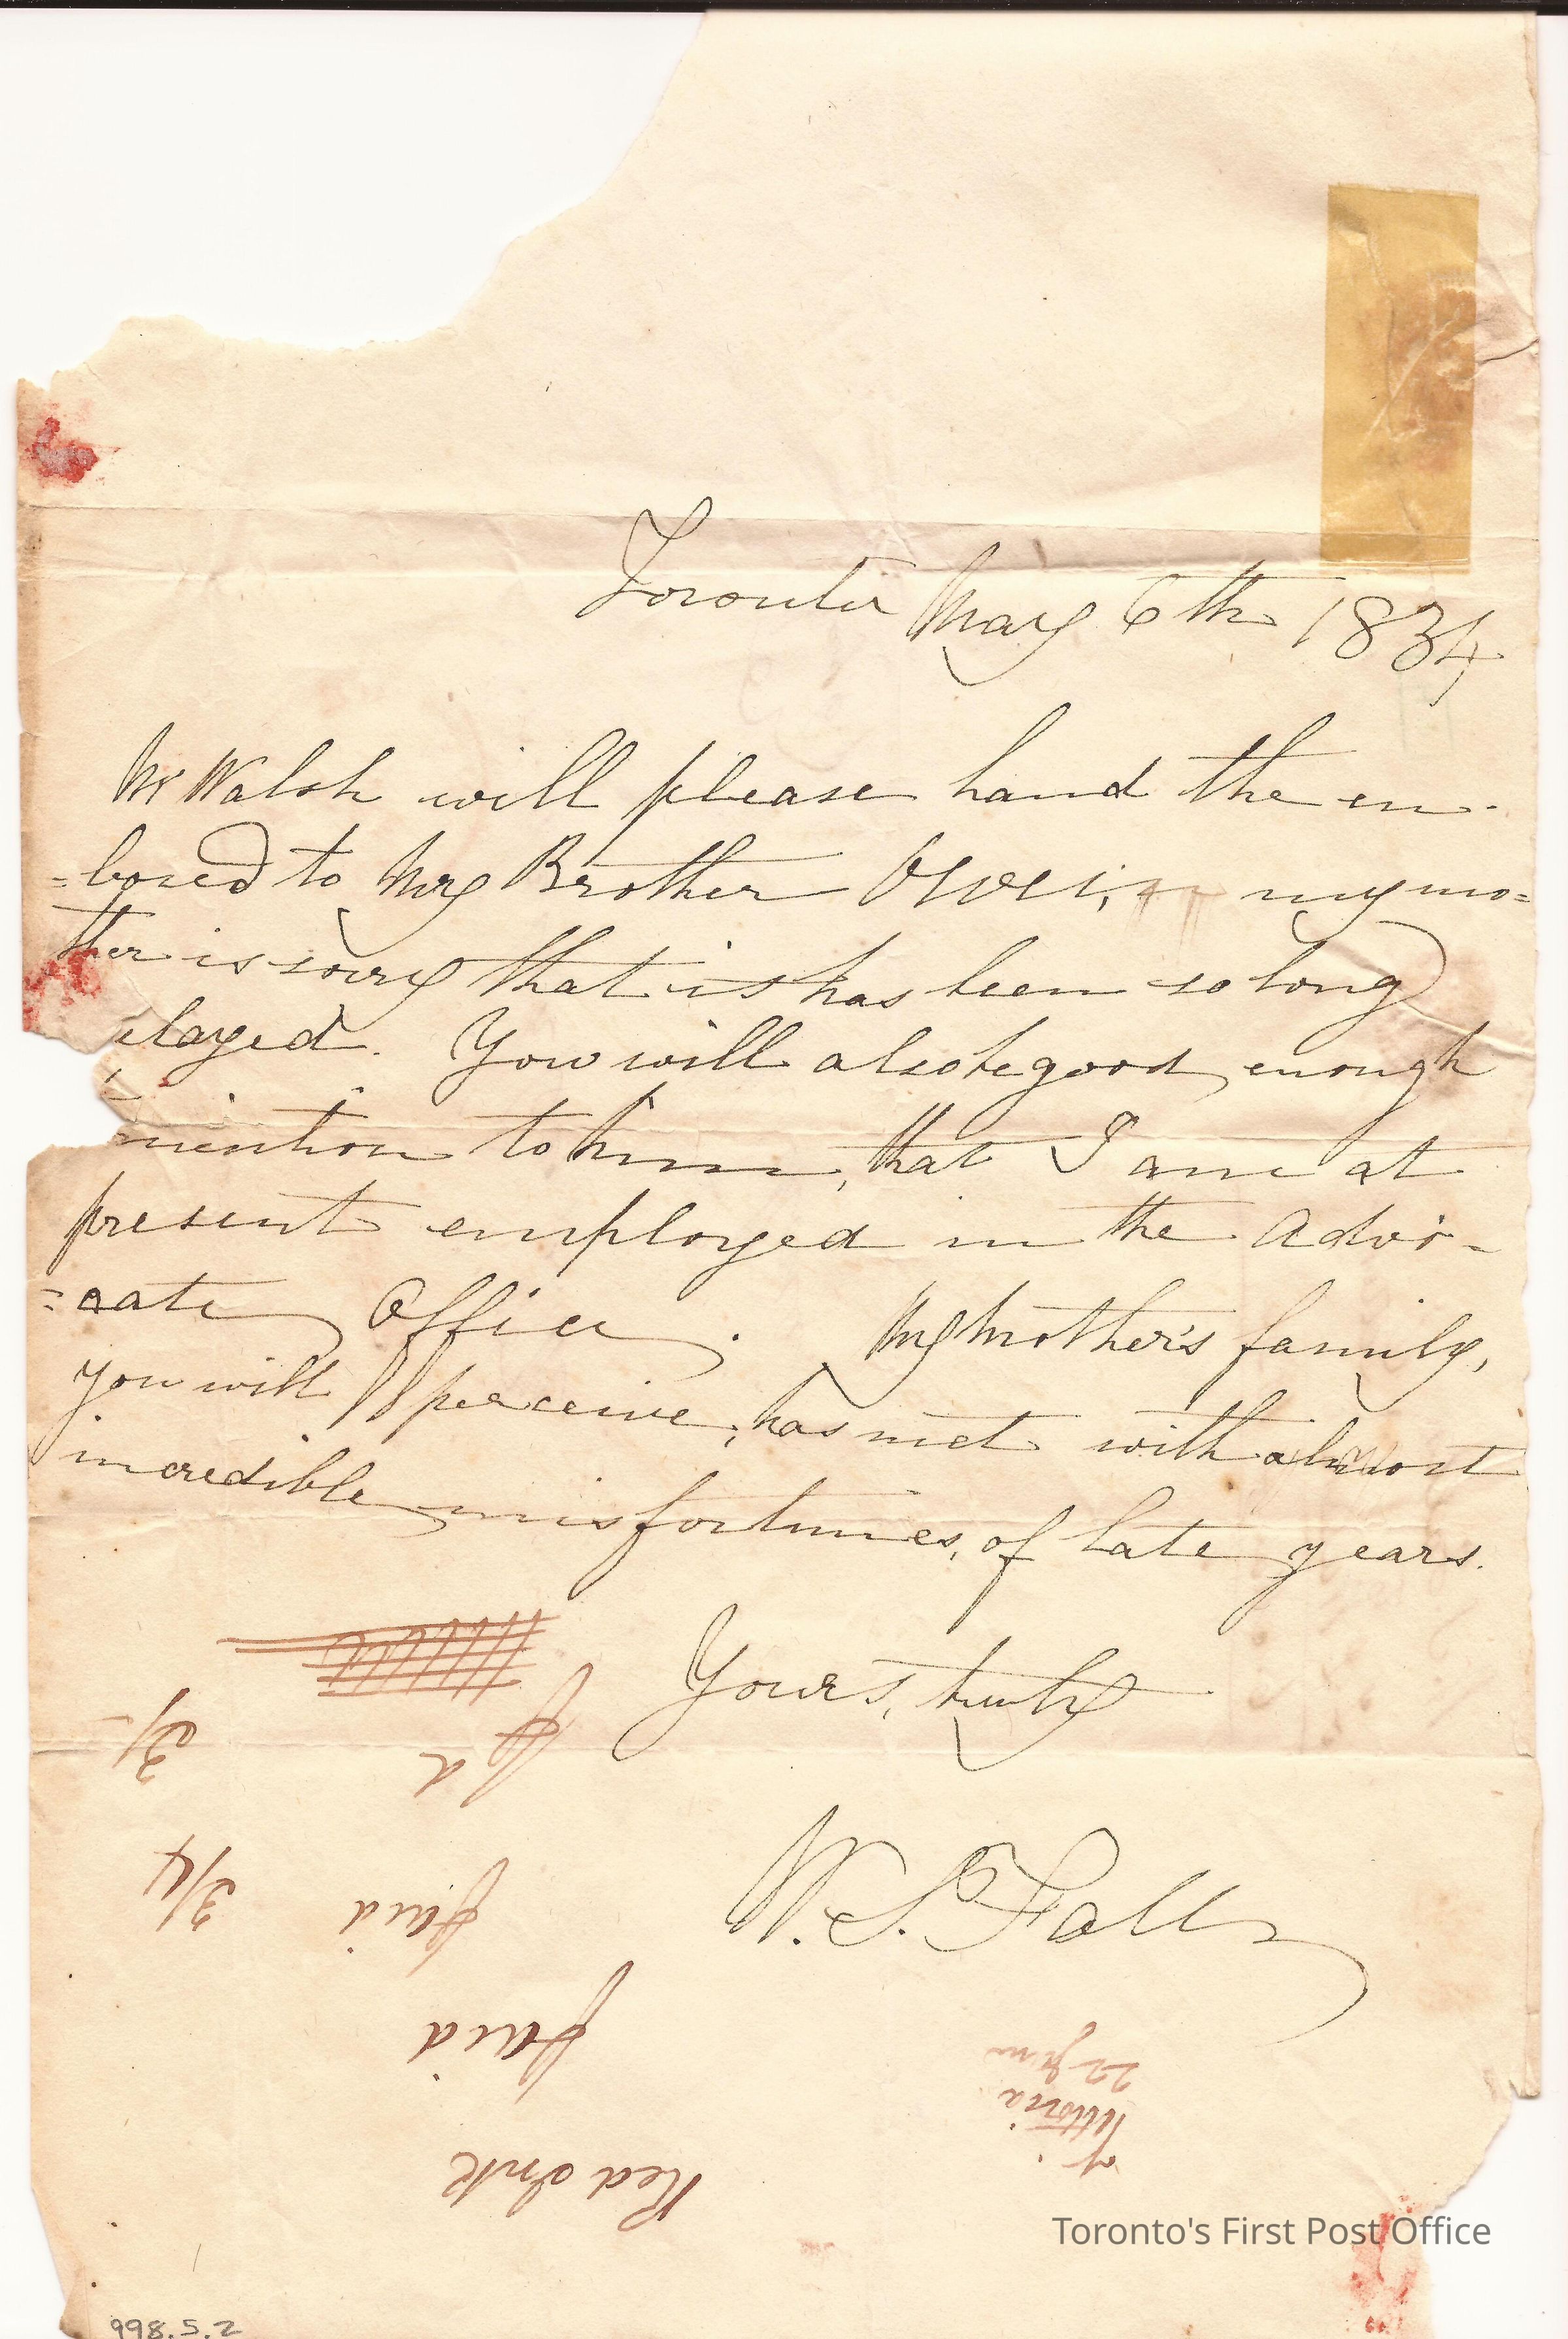 Toronto May 6th 1834
Mr Walsh will please hand the en-
=losed to my Brother my mo=
ther is sorry that it has been so long
elayed. You will also be good enough
mention to him, that I am at
present employed in the Advo-
=cate Office. My Mother's family,
you will perceive, has met with almost
incredible misfortunes, of late years.
Yours, truly
W. S. Falls
2/-
3/4
Paid
Paid
Red Ink
Vittoria
Toronto's First Post Office
998.5.2